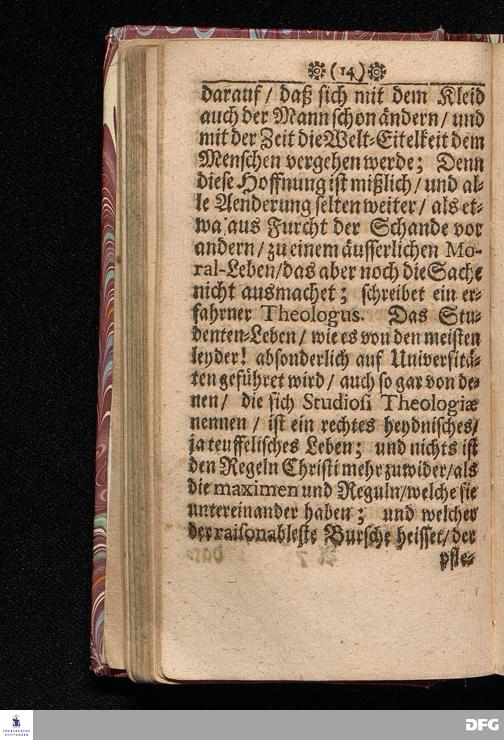 (14)
darauf / daß sich mit dem Kleid
auch der Mann schon ändern / und
mit der Zeit die Welt-Eitelkeit dem
Menschen vergehen werde; Denn
diese Hoffnung ist mißlich / und al-
le Aenderung selten weiter / als et-
wa aus Furcht der Schande vor
andern / zu einem äusserlichen Mo-
ral-Leben / das aber noch die Sache
nicht ausmachet; schreibet ein er-
fahrner Theologus. Das Stu-
denten-Leben / wie es von den meisten
leyder! absonderlich auf Universitä-
ten geführet wird / auch so gar von de-
nen / die sich Studiosi Theologiæ
nennen / ist ein rechtes heydnisches /
ja teuffelisches Leben; und nichts ist
den Regeln Christi mehr zuwider / als
die maximen und Reguln / welche sie
untereinander haben; und welcher
der raisonableste Bursche heisset / der
pfle-
FRANCKESCHE
STIFTUNGEN
DFG